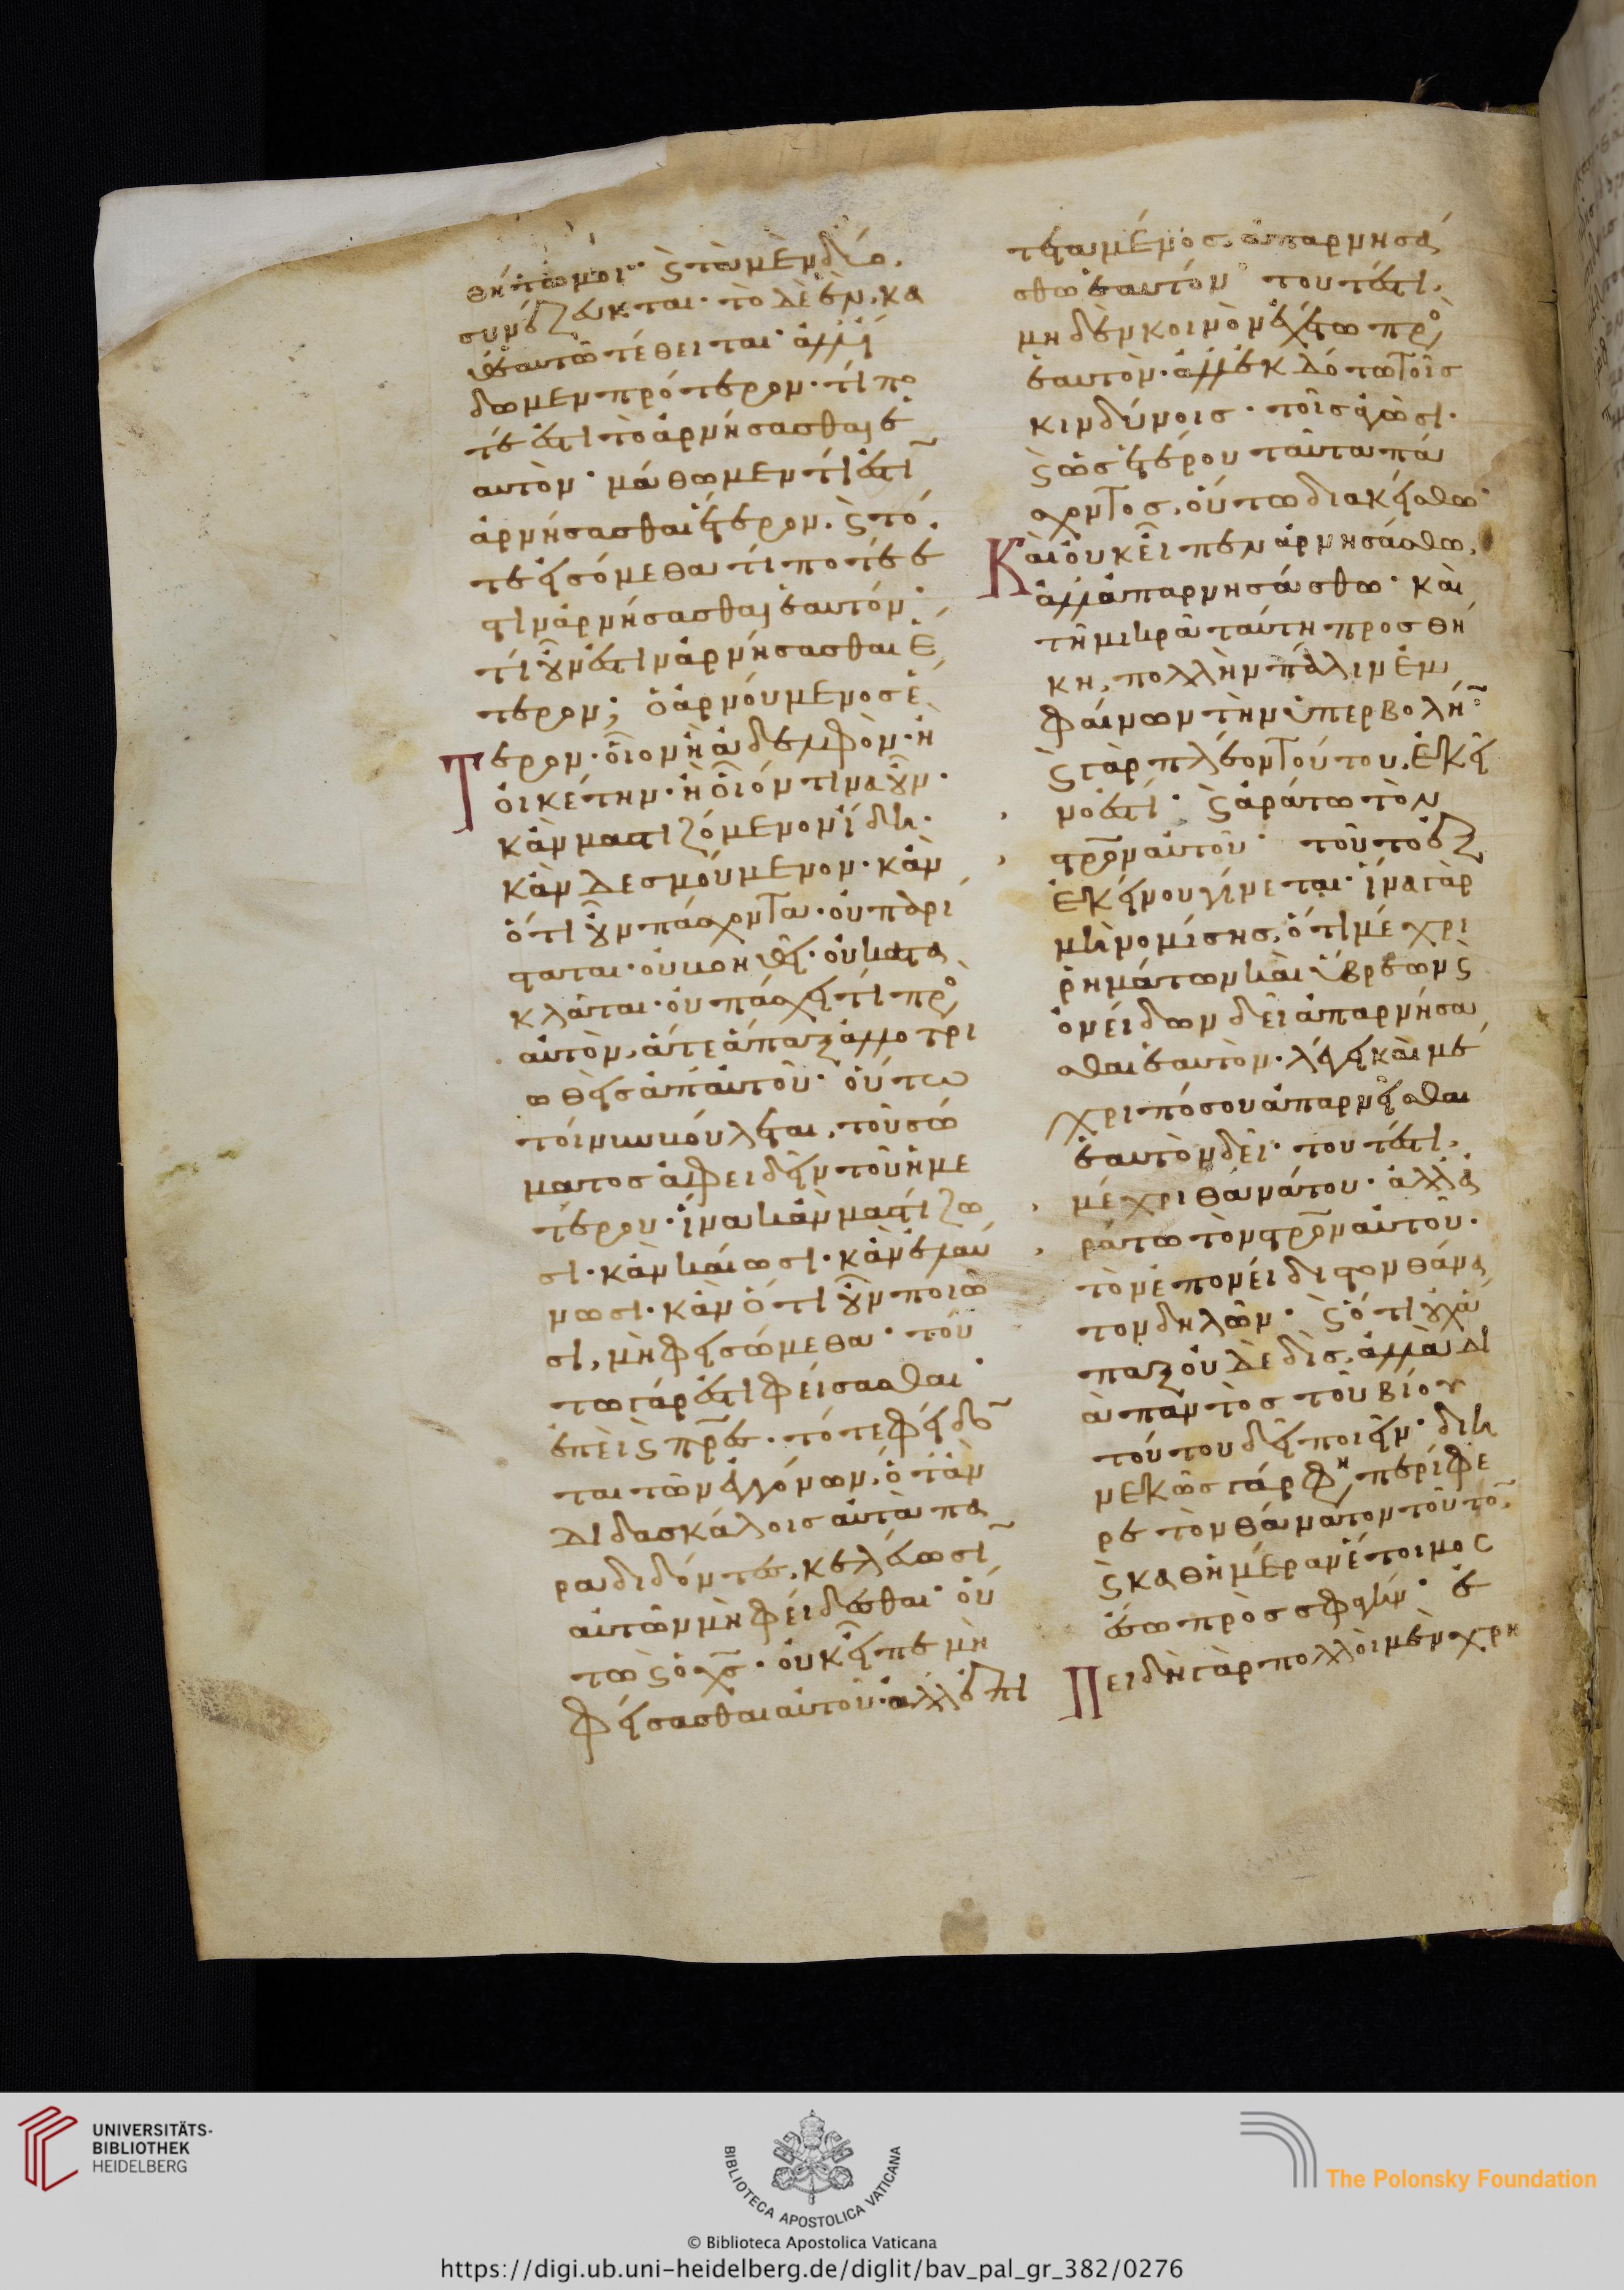 θήτω μοι· ϛ τὰ μὲν δύο
συνέζευκται· τὸ δὲ ἓν κα
θ' ἑαυτὸ τέθειται· ἀλλ' ἴ
δωμεν πρότερον· τί πο
τέ ἐστι τὸ ἀρνήσασθαι ἑ
αυτόν· μάθωμεν τί ἐστῖ
ἀρνήσασθαι ἕτερον. ϛ τό
τε εἰσόμεθα τί ποτέ ἐ
στιν ἀρνήσασθαι ἑαυτόν·
τί οὖν ἐστιν ἀρνήσασθαι ἕ
τερον; ὁ ἀρνούμενος ἕ
τερον· οἷον ἢ ἀδελφὸν· ἢ
οἰκέτην· ἢ οἷόν τινα οὖν·
κἂν μαστιζόμενον ἴδη·
κἂν δεσμούμενον· κἂν
ὁτιοῦν πάσχοντα· οὐ παρί
σταται· οὐ βοηθεῖ· οὐ κατα
κλᾶται· οὐ πάσχει τι πρὸ
αὐτὸν, ἅτε ἅπαξ ἀλλοτρι
ωθεὶς ἀπ' αὐτοῦ· οὕτω
τοίνυν βούλεται, τοῦ σώ
ματος ἀφειδεῖν τοῦ ἡμε
τέρου· ἵνα κἂν μαστίζω
σι· κἂν καίωσι· κἂν ἐλαύ
νωσι· κἂν ὁτιοῦν ποιῶ
σι, μὴ φεισώμεθα· τοῦ
το γάρ ἐστι φείσασθαι·
ἐπεὶ ϛ πρ̅ες· τότε φείδο͂
ται τῶν ἐγγόνων, ὅταν
διδασκάλοις αὐτὰ πα
ραδιδόντες, κελεύωσῖ
αὐτῶν μὴ φείδεσθαι· οὕ
τω ϛ ὁ χ̅ς· οὐκ εἶπε μὴ
φείσασθαι αὐτοῦ· ἀλλ' ἐπι
τεταμένος, ἀπαρνησά
σθω ἑαυτόν· τουτέστι,
μηδὲν κοινὸν ἐχέτω πρὸ
ἑαυτὸν· ἀλλ' ἐκδότω τοῖς
κινδύνοις· τοῖς ἀγῶσι·
ϛ ὡς ἑτέρου ταῦτα πά
σχοντος, οὕτω διακείσθω·
Καὶ οὐκ εἶπεν ἀρνησάσθω,
ἀλλ' ἀπαρνησάσθω· καὶ
τῇ μικρᾷ ταύτη προσθή
κη, πολλὴν πάλιν ἐμ
φαίνων τὴν ὑπερβολή͂·
ϛ γὰρ πλέον τούτου, ἐκεῖ
νό ἐστι· ϛ ἀράτω τὸν
στρ̅ον αὐτοῦ· τοῦτο ἐξ
ἐκείνου γίνεται· ἵνα γὰρ
μὴ νομίσης, ὅτι μέχρι
ῥημάτων καὶ ὕβρεων ϛ
ὀνείδων δεῖ ἀπαρνήσα
σθαι ἑαυτὸν· λέγει καὶ μέ
χρι πόσου ἀπαρνεῖσθαι
ἑαυτὸν δεῖ· τουτέστι,
μέχρι θανάτου· ἀλλ' ἀ
ράτω τὸν στρ̅ον αὐτοῦ·
τὸν ἐπονείδιστον θάνα
τον δηλῶν· ϛ ὅτι οὐχ ἅ
παξ οὐδὲ δὶς, ἀλλὰ δι
ὰ παντὸς τοῦ βίου
τοῦτο δεῖ ποιεῖν· διη
νεκῶς γάρ φη, περίφε
ρε τὸν θάνατον τοῦτο͂,
ϛ καθημέραν ἕτοιμος
ἔσο πρὸς σφαγήν· ἐ
Πειδὴ γὰρ πολλοὶ μὲν χρη
UNIVERSITÄTS-
BIBLIOTHEK
HEIDELBERG
BIBLIOTECA APOSTOLICA VATICANA
The Polonsky Foundation
© Biblioteca Apostolica Vaticana
https://digi.ub.uni-heidelberg.de/diglit/bav_pal_gr_382/0276